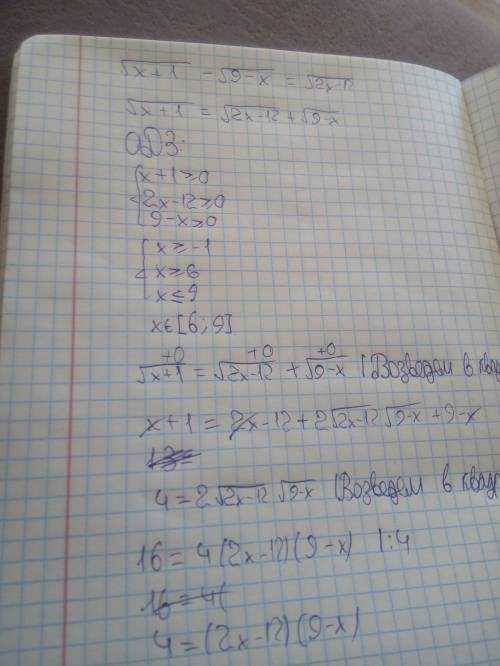 √x+1 - √9-x = √2x-12
√x+1 = √2x-12 + √9-x
ОДЗ:
x+1≥0
2x-12≥0
9-x≥0
x≥-1
x≥6
x≤9
x∈[6;9]
+0 +0 +0
√x+1 = √2x-12 + √9-x | Возведем в квад
x+1 = 2x-12+2√2x-12 √9-x +9-x
4=2√2x-12 √9-x | Возведем в квад
16=4(2x-12)(9-x) |:4
16=4(
4=(2x-12)(9-x)